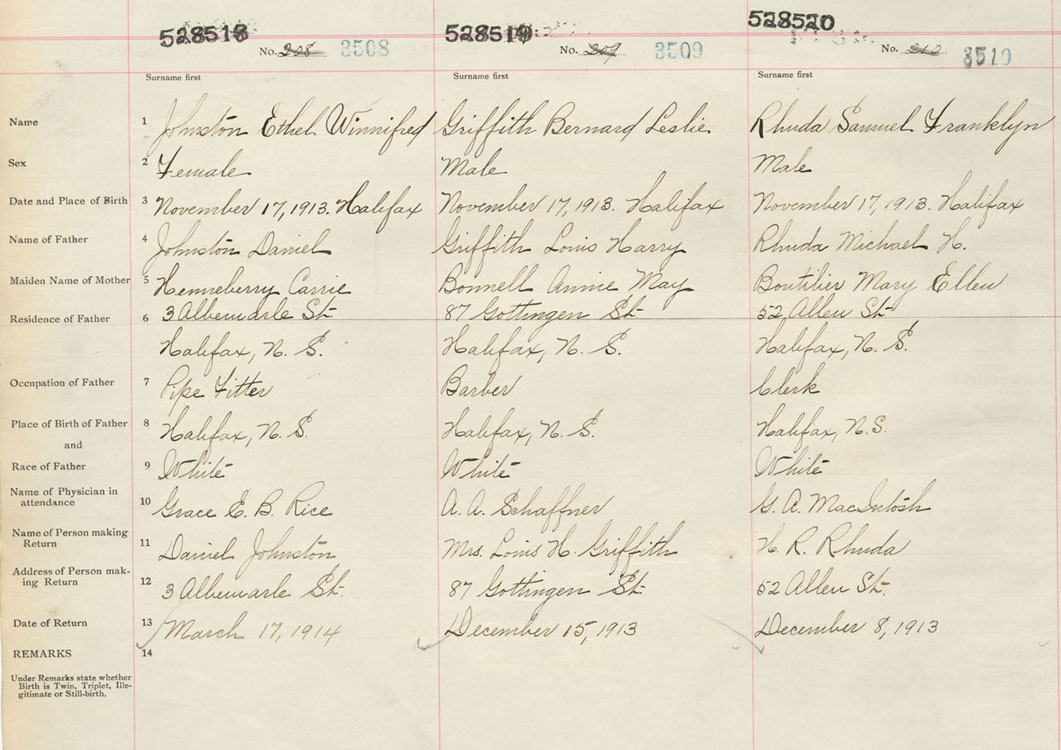 528518 528519 528520
No. 208 3508 No. 209 3509 No. 210 3510
Surname first Surname first Surname first
Name 1 Johnston Ethel Winnifred Griffith Bernard Leslie Rhuda Samuel Franklyn
Sex 2 Female Male Male
Date and Place of Birth 3 November 17, 1913. Halifax November 17, 1913. Halifax November 17, 1913. Halifax
Name of Father 4 Johnston Daniel Griffith Louis Harry Rhuda Michael H.
Maiden Name of Mother 5 Henneberry Carrie Bonnell Annie May Boutilier Mary Ellen
Residence of Father 6 3 Albemarle St. 87 Gottingen St. 52 Allen St.
Halifax, N. S. Halifax, N. S. Halifax, N. S.
Occupation of Father 7 Pipe Fitter Barber Clerk
Place of Birth of Father 8 Halifax, N. S. Halifax, N. S. Halifax, N.S.
and
Race of Father 9 White White White
Name of Physician in
attendance 10 Grace E. B. Rice A. A. Schaffner G. A. MacIntosh
Name of Person making
Return 11 Daniel Johnston Mrs. Louis H. Griffith H. R. Rhuda
Address of Person mak-
ing Return 12 3 Albemarle St. 87 Gottingen St. 52 Allen St.
Date of Return 13 March 17, 1914 December 15, 1913 December 8, 1913
REMARKS 14
Under Remarks state whether
Birth is Twin, Triplet, Ille-
gitimate or Still-birth.